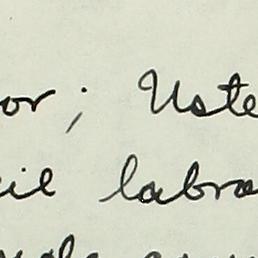 or; Uste
il labra